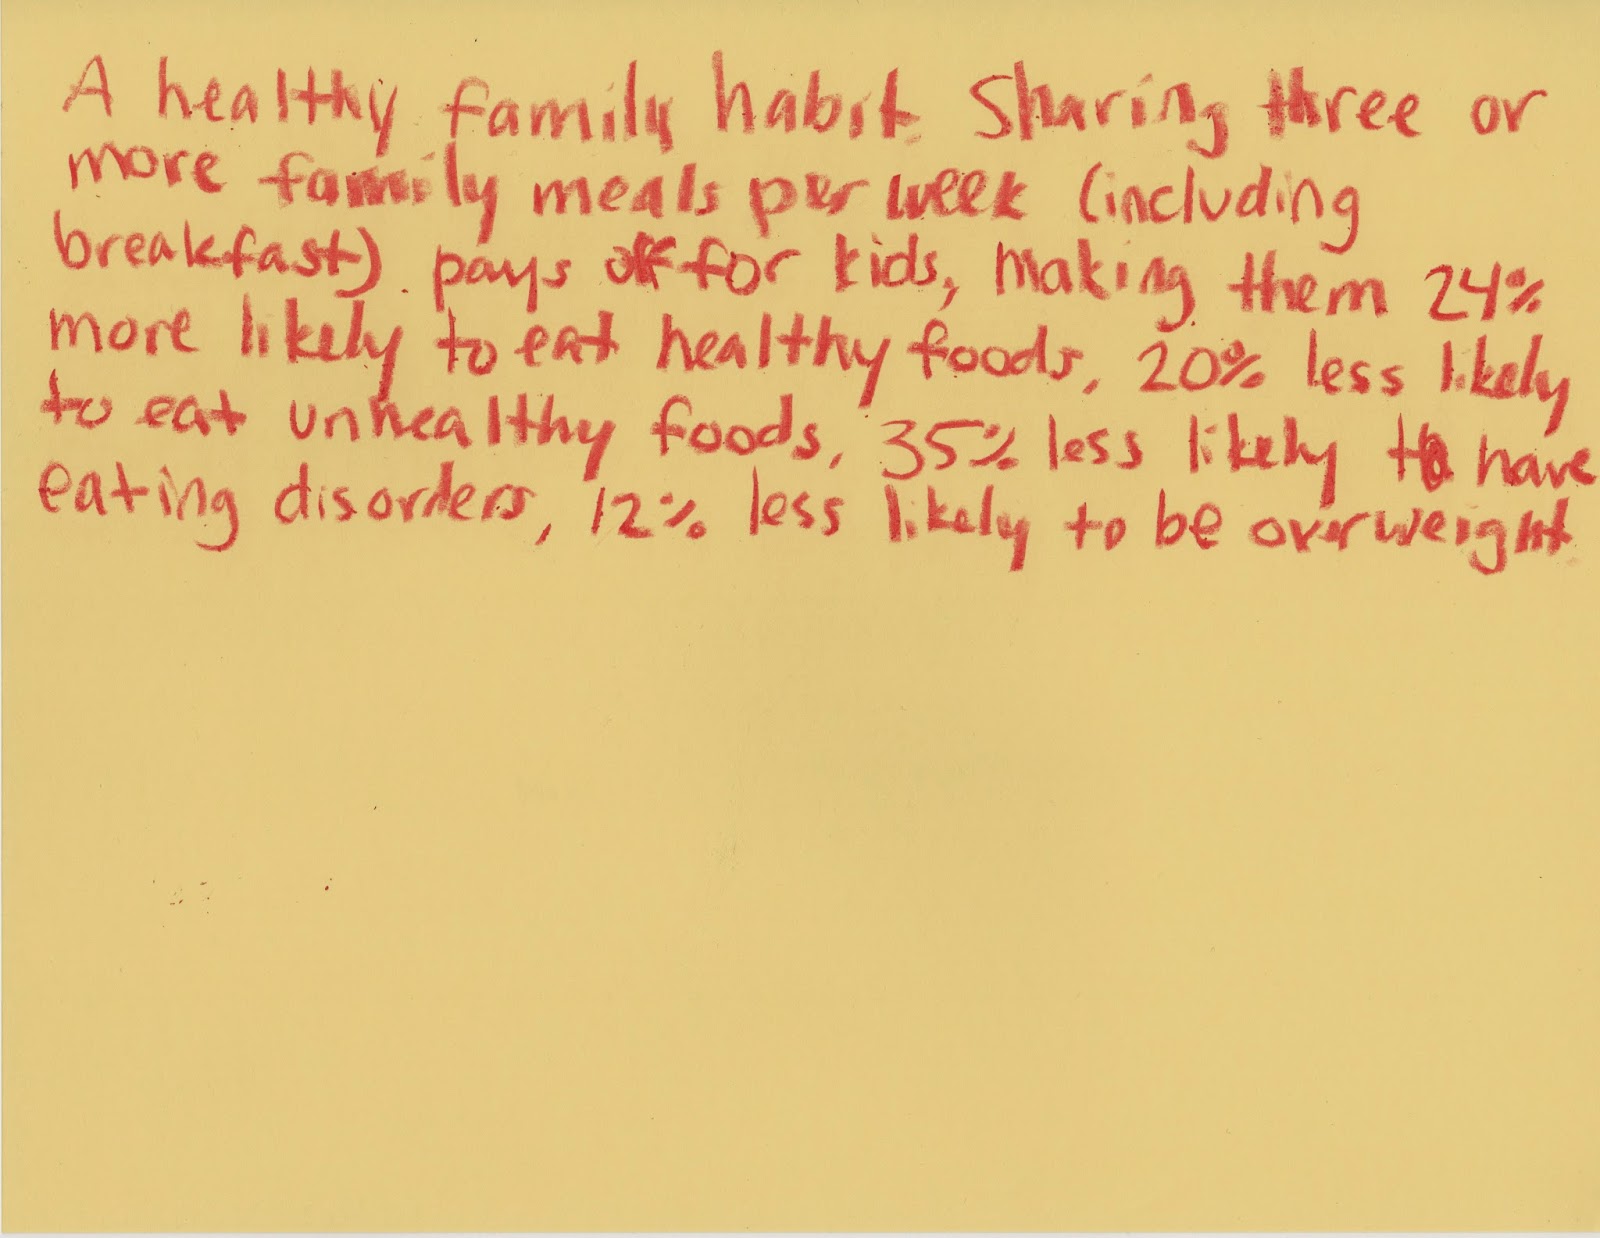 A healthy family habit. Sharing three or
more family meals per week (including
breakfast). pays off for kids, making them 24%
more likely to eat healthy foods, 20% less likely
to eat unhealthy foods, 35% less likely to have
eating disorders, 12% less likely to be overweight.